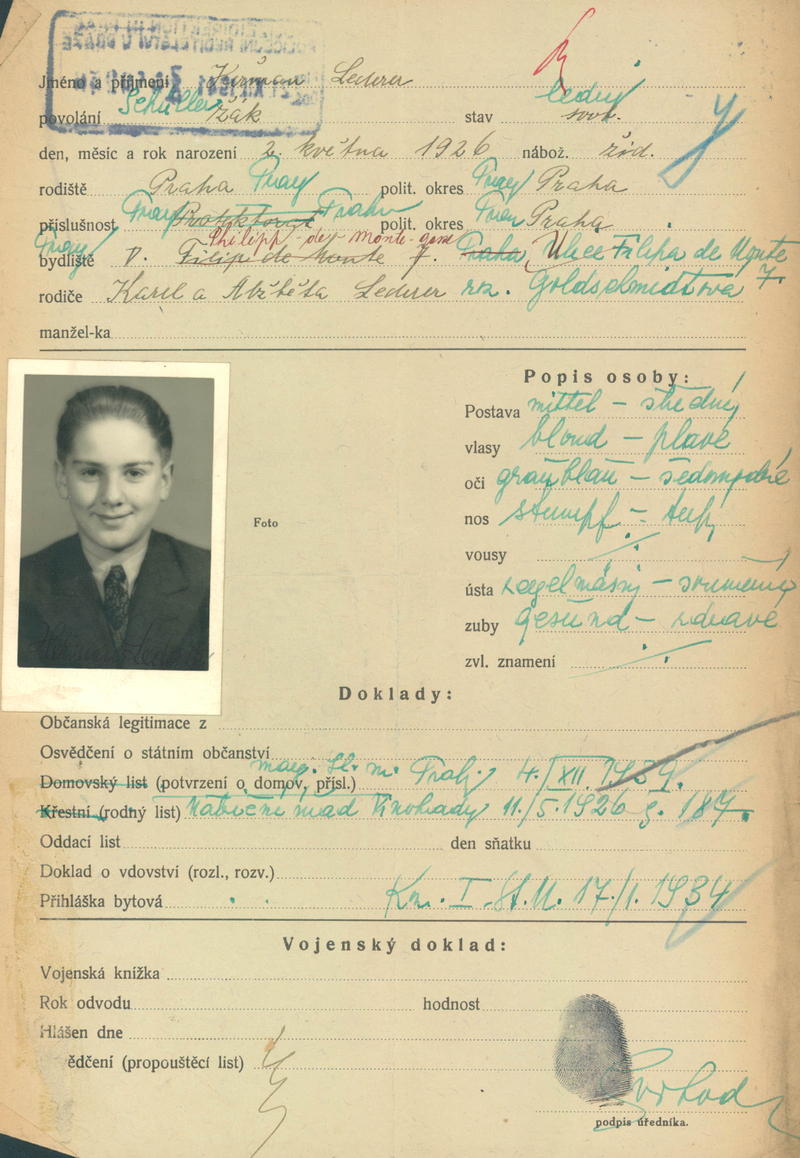 Jméno a příjmení Heřman Lederer
povolání Schüller žák stav ledig svob.
den, měsíc a rok narození 2. května 1926 nábož. žid.
rodiště Praha Prag polit. okres Prag Praha
příslušnost Prag Protektorat Praha polit. okres Prag Praha
Prag Philipp-de-Monte-gasse
bydliště V. Filip de Monte 7. Praha, Ulice Filipa de Monte 7.
rodiče Karel a Alžběta Lederer roz. Goldschmidtova
manžel-ka
Popis osoby:
Postava mittel - střední
vlasy blond - plavé
oči graublau - šedomodré
nos stumpf - tupý
vousy ./.
ústa regelmässig - souměrný
zuby gesund - zdravé
zvl. znamení ./.
Foto
Doklady:
Občanská legitimace z
Osvědčení o státním občanství
mag. hl. m. Prahy 4./XII. 1939.
Domovský list (potvrzení o domov. přísl.)
Křestní (rodný list) Vinohrady 11./5. 1926 č. 187.
Oddací list den sňatku
Doklad o vdovství (rozl., rozv.)
Přihláška bytová Kn. I. St. M. 17./1. 1934
Vojenský doklad:
Vojenská knížka
Rok odvodu hodnost
Hlášen dne
ědčení (propouštěcí list)
podpis úředníka.